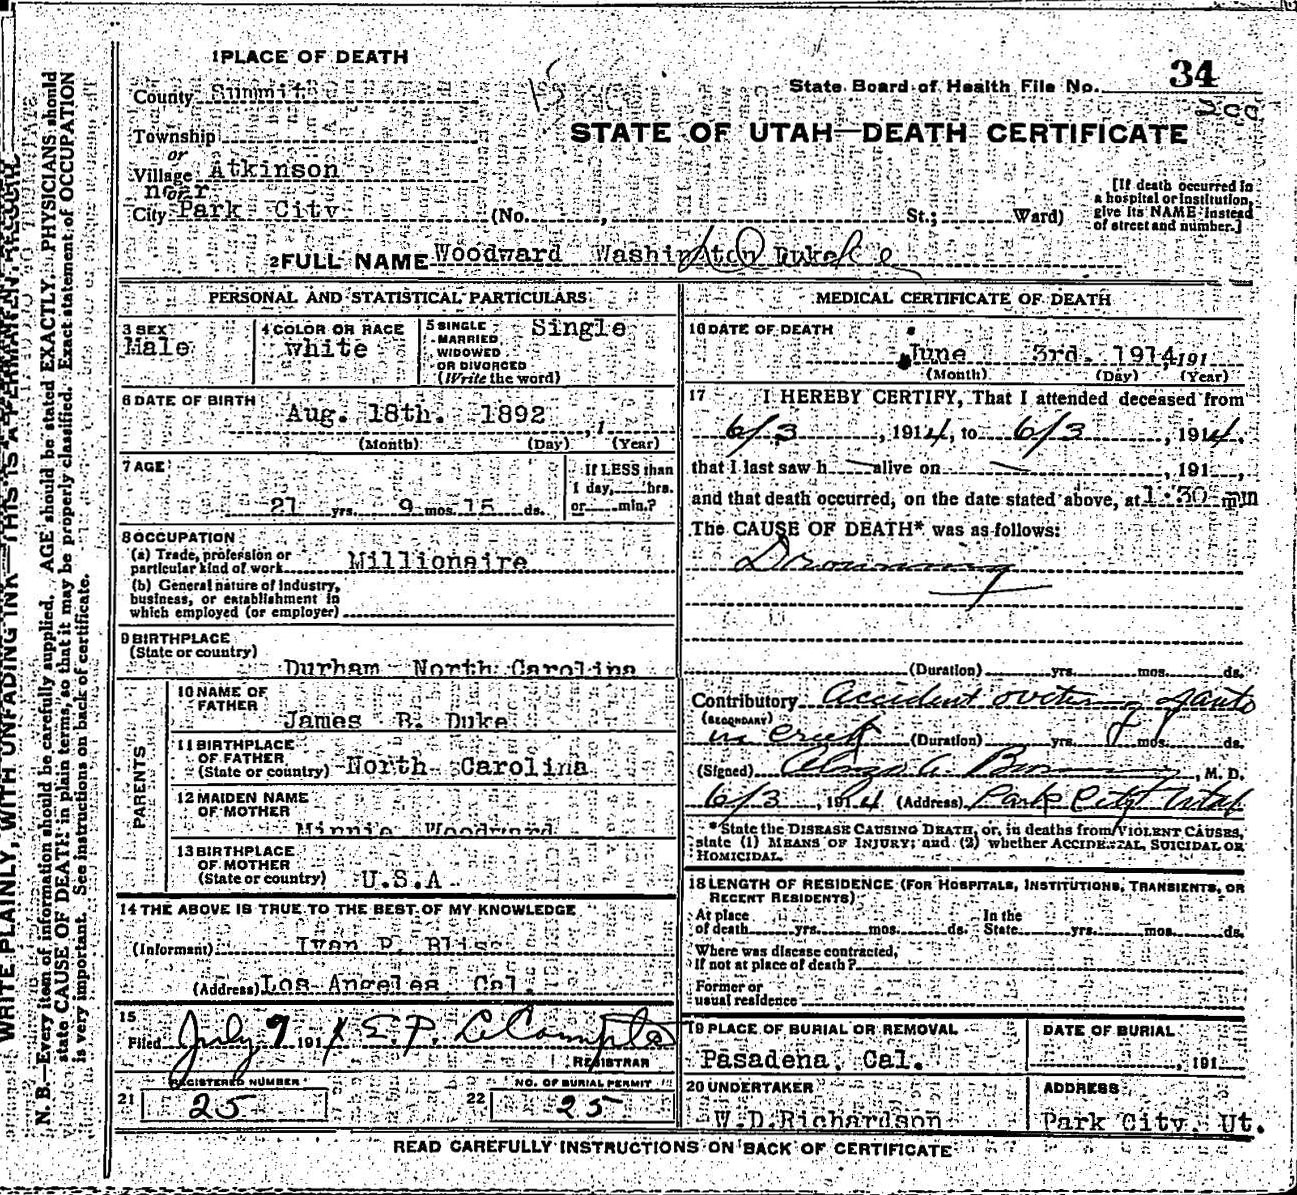 1 PLACE OF DEATH
County Summit
Township
or
Village Atkinson
near
or
City Park City (No. , St.; Ward)
State Board of Health File No. 34
STATE OF UTAH—DEATH CERTIFICATE
[If death occurred in
a hospital or institution,
give its NAME instead
of street and number.]
2 FULL NAME Woodward Washington Duke
PERSONAL AND STATISTICAL PARTICULARS
3 SEX
Male
4 COLOR OR RACE
white
5 SINGLE
MARRIED,
WIDOWED
OR DIVORCED
(Write the word)
Single
6 DATE OF BIRTH
Aug. 18th. 1892 , 1
(Month) (Day) (Year)
7 AGE
21 yrs. 9 mos. 15 ds.
If LESS than
1 day, hrs.
or min.?
8 OCCUPATION
(a) Trade, profession or
particular kind of work Millionaire
(b) General nature of industry,
business, or establishment in
which employed (or employer)
9 BIRTHPLACE
(State or country)
Durham North Carolina
PARENTS
10 NAME OF
FATHER
James B. Duke
11 BIRTHPLACE
OF FATHER
(State or country) North Carolina
12 MAIDEN NAME
OF MOTHER
Minnie Woodward
13 BIRTHPLACE
OF MOTHER
(State or country) U.S.A.
14 THE ABOVE IS TRUE TO THE BEST OF MY KNOWLEDGE
(Informant) Ivan
(Address) Los Angeles Cal.
15
Filed July 9 191 E. P.
REGISTRAR
REGISTERED NUMBER
21 25
NO. OF BURIAL PERMIT
22 25
MEDICAL CERTIFICATE OF DEATH
16 DATE OF DEATH
June 3rd. 1914, 191
(Month) (Day) (Year)
17 I HEREBY CERTIFY, That I attended deceased from
6/3 , 1914, to 6/3 , 1914,
that I last saw h alive on , 191 ,
and that death occurred, on the date stated above, at 1.30 m
The CAUSE OF DEATH* was as follows:
Drowning
(Duration) yrs. mos. ds.
Contributory Accident of auto
(SECONDARY)
in Creek (Duration) yrs. mos. ds.
(Signed) , M. D.
6/3 , 1914 (Address) Park City Utah
*State the DISEASE CAUSING DEATH, or, in deaths from VIOLENT CAUSES,
state (1) MEANS OF INJURY; and (2) whether ACCIDENTAL, SUICIDAL OR
HOMICIDAL.
18 LENGTH OF RESIDENCE (FOR HOSPITALS, INSTITUTIONS, TRANSIENTS, OR
RECENT RESIDENTS)
At place In the
of death yrs. mos. ds. State yrs. mos. ds.
Where was disease contracted,
If not at place of death?
Former or
usual residence
19 PLACE OF BURIAL OR REMOVAL
Pasadena, Cal.
DATE OF BURIAL
, 191
20 UNDERTAKER
W.D.Richardson
ADDRESS
Park City, Ut.
READ CAREFULLY INSTRUCTIONS ON BACK OF CERTIFICATE
WRITE PLAINLY, WITH UNFADING INK—THIS IS A PERMANENT RECORD
N. B.—Every item of information should be carefully supplied. AGE should be stated EXACTLY. PHYSICIANS should
state CAUSE OF DEATH in plain terms, so that it may be properly classified. Exact statement of OCCUPATION
is very important. See instructions on back of certificate.